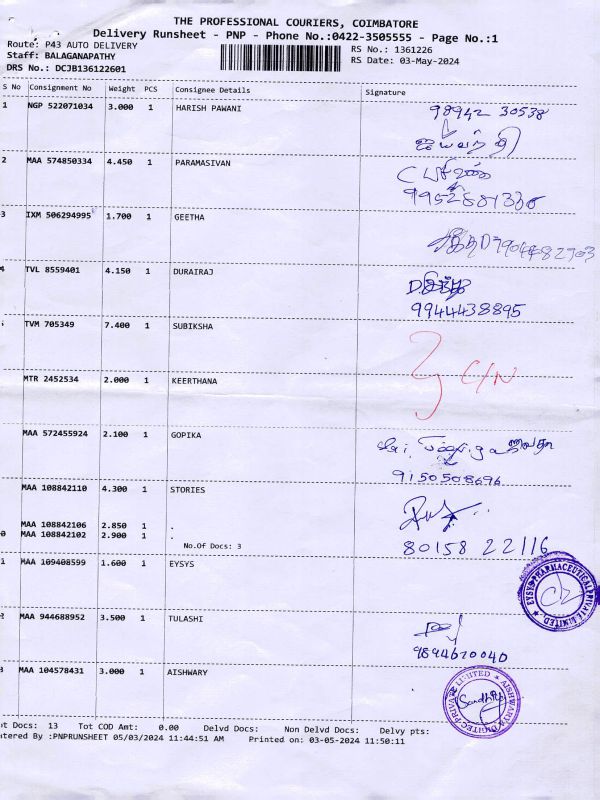 THE PROFESSIONAL COURIERS, COIMBATORE
Delivery Runsheet - PNP - Phone No.:0422-3505555 - Page No.:1
Route: P43 AUTO DELIVERY
Staff: BALAGANAPATHY
DRS No.: DCJB136122601
RS No.: 1361226
RS Date: 03-May-2024
S No Consignment No Weight PCS Consignee Details Signature
1 NGP 522071034 3.000 1 HARISH PAWANI 98942 30538
2 MAA 574850334 4.450 1 PARAMASIVAN
3 IXM 506294995 1.700 1 GEETHA
4 TVL 8559401 4.150 1 DURAIRAJ
9944438895
TVM 705349 7.400 1 SUBIKSHA
C/N
MTR 2452534 2.000 1 KEERTHANA
MAA 572455924 2.100 1 GOPIKA
9150508696
MAA 108842110 4.300 1 STORIES
MAA 108842106 2.850 1 .
0 MAA 108842102 2.900 1 .
No.Of Docs: 3
80158 22116
1 MAA 109408599 1.600 1 EYSYS
EYSYS PHARMACEUTICAL PRIVATE LIMITED
2 MAA 944688952 3.500 1 TULASHI
9894670040
3 MAA 104578431 3.000 1 AISHWARY
t Docs: 13 Tot COD Amt: 0.00 Delvd Docs: Non Delvd Docs: Delvy pts:
ntered By :PNPRUNSHEET 05/03/2024 11:44:51 AM Printed on: 03-05-2024 11:50:11